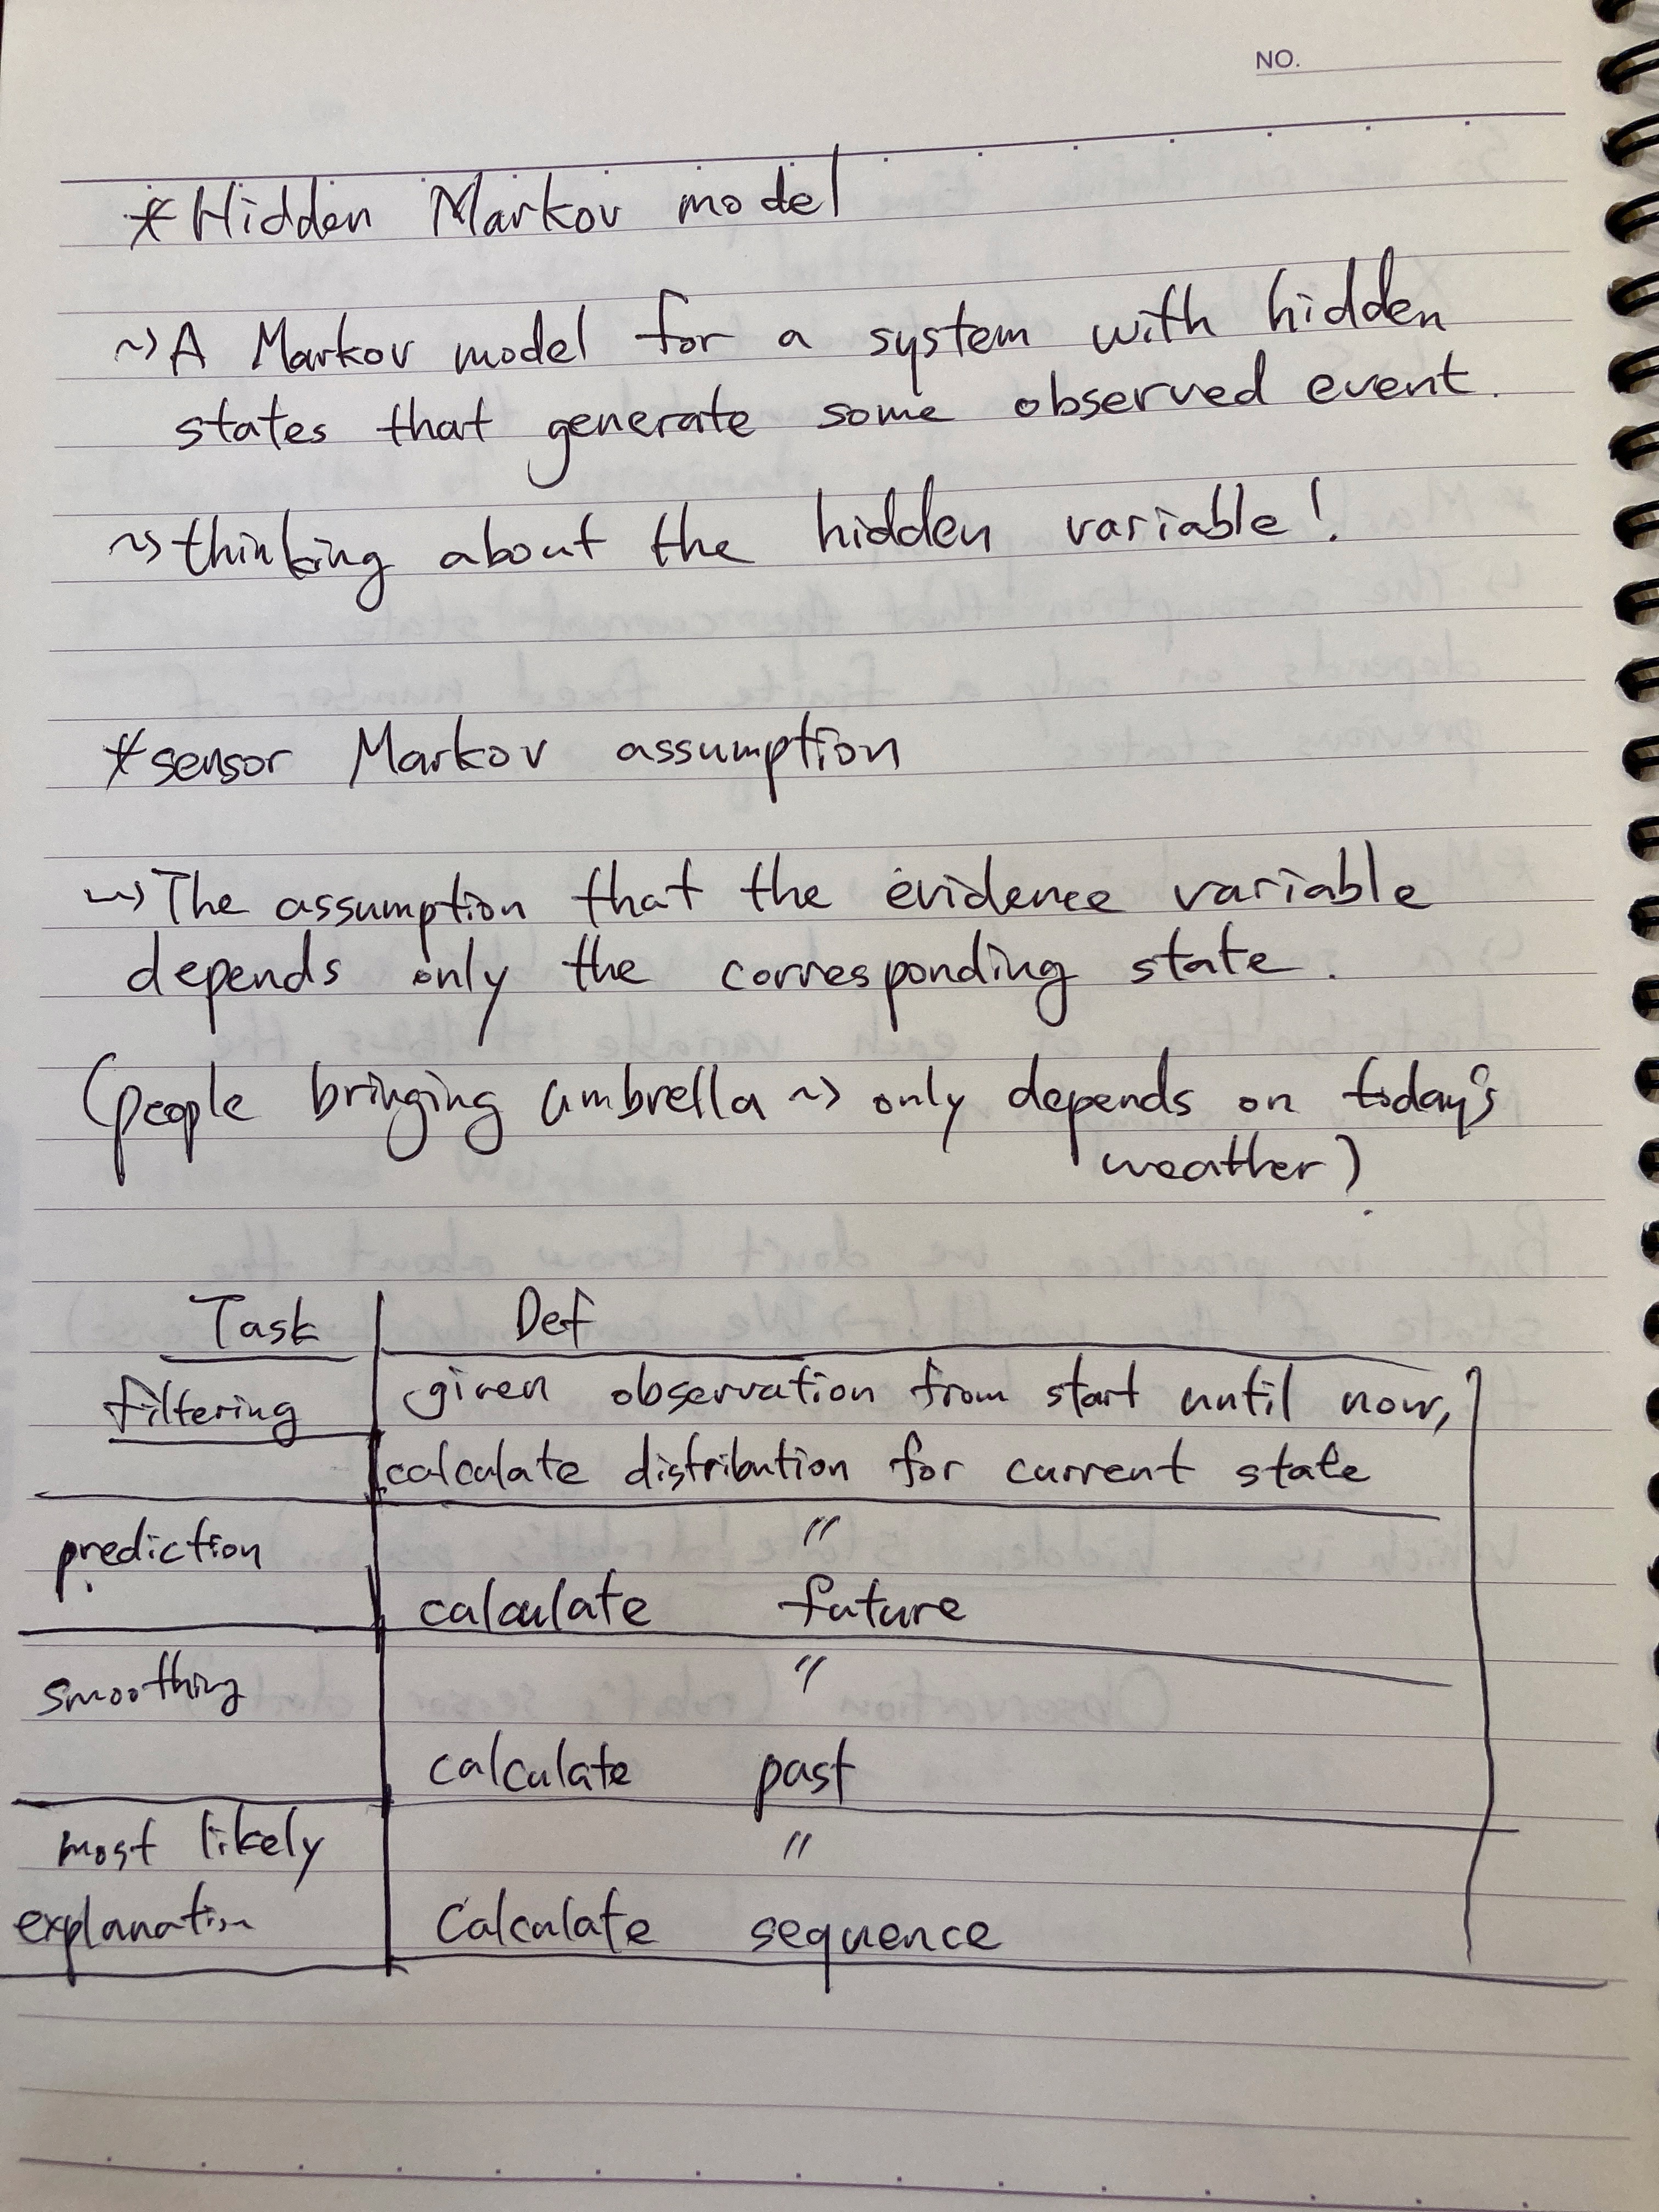 NO.
*Hidden Markov model
~> A Markov model for a system with hidden
states that generate some observed event.
~> thinking about the hidden variable!
*sensor Markov assumption
~> The assumption that the evidence variable
depends only the corresponding state.
(people bringing umbrella ~> only depends on today's
weather)
Task Def
filtering given observation from start until now,
calculate distribution for current state
prediction 〃
calculate future
smoothing 〃
calculate past
most likely 〃
explanation Calculate sequence